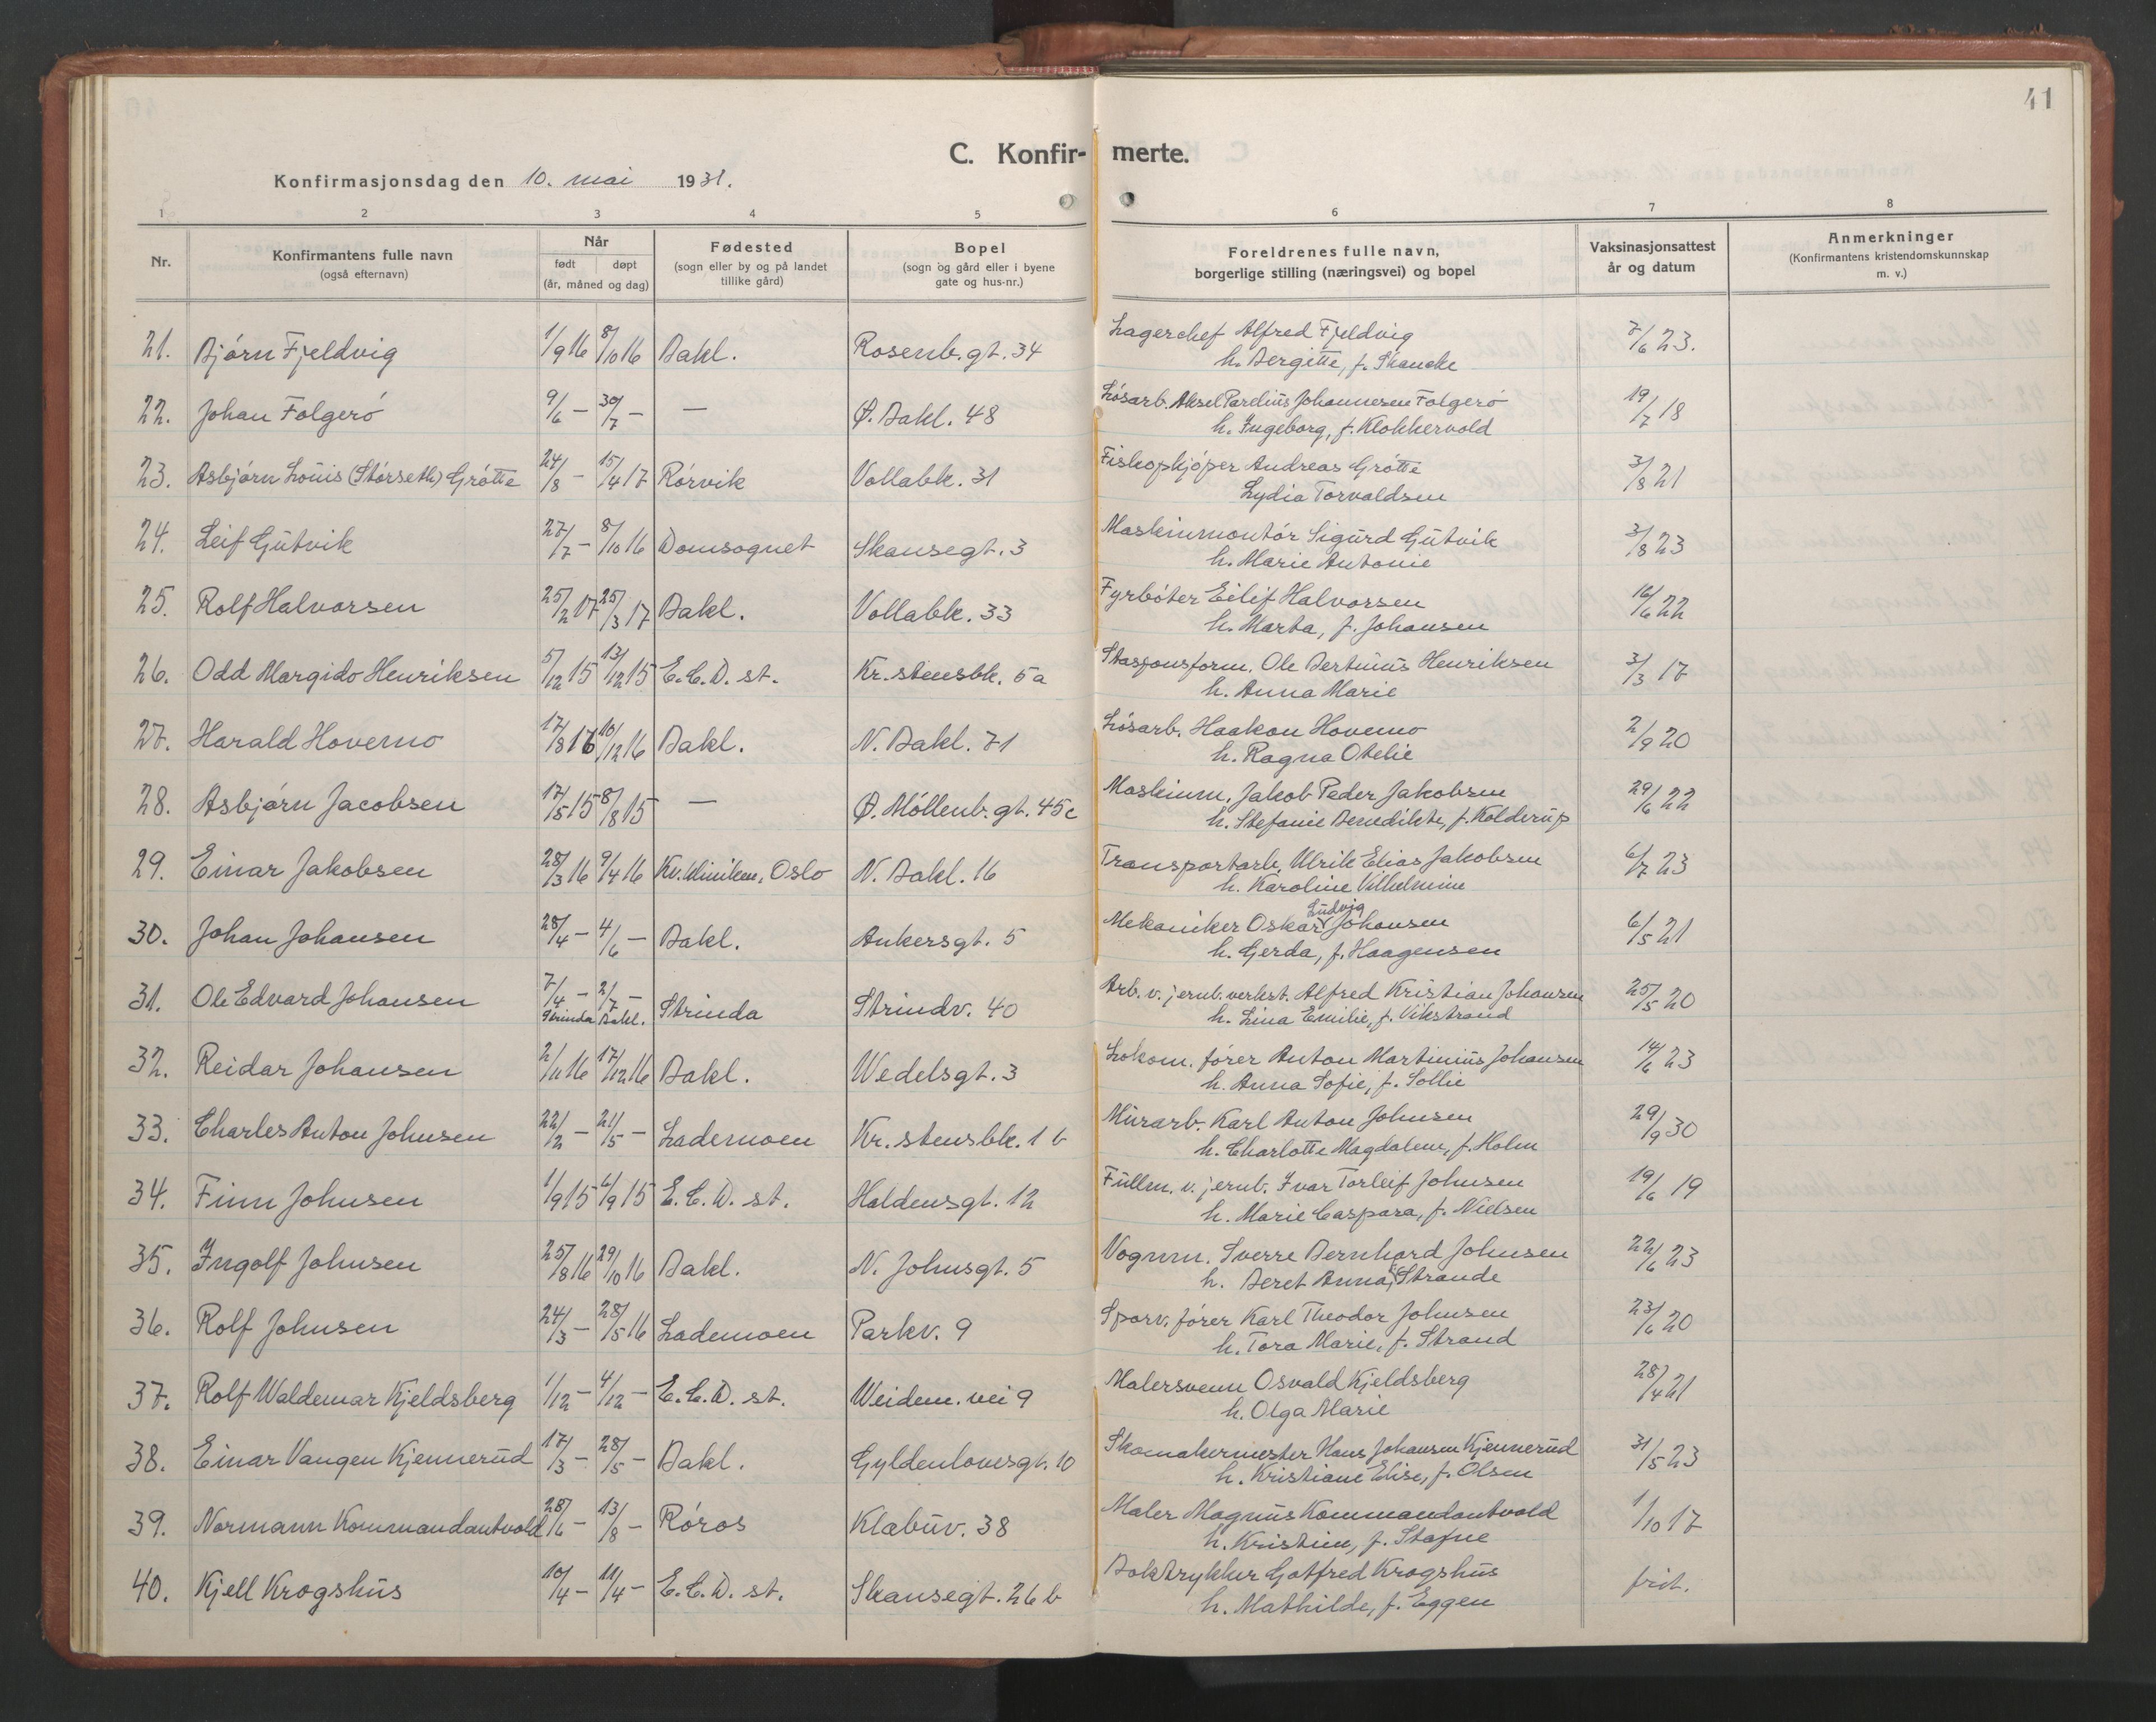 41
C. Konfir- merte.
Konfirmasjonsdag den 10. mai 1931.
1 2 3 4 5 6 7 8
Nr.
Konfirmantens fulle navn
(også efternavn)
Når
født døpt
(år, måned og dag)
Fødested
(sogn eller by og på landet
tillike gård)
Bopel
(sogn og gård eller i byene
gate og hus-nr.)
Foreldrenes fulle navn,
borgerlige stilling (næringsvei) og bopel
Vaksinasjonsattest
år og datum
Anmerkninger
(Konfirmantens kristendomskunnskap
m. v.)
21. Bjørn Fjeldvig 1/9 16 8/10 16 Bakl. Rosenb.gt. 34 Lagerchef Alfred Fjeldvig 7/6 23.
h. Bergitte, f. Skancke
22. Johan Folgerö 9/6 — 30/7 — — Ø. Bakl. 48 Lösarb. Aksel Parelius Johannesen Folgerö 19/7 18
h. Ingeborg, f. Klokkervold
23. Asbjørn Louis (Störseth) Grötte 24/8 — 15/4 17 Rörvik Vollabk. 31 Fiskopkjöper Andreas Grötte 3/8 21
Lydia Torvaldsen
24. Leif Gutvik 27/7 — 8/10 16 Domsognet Skansegt. 3 Maskinmontör Sigurd Gutvik 3/8 23
h. Marie Antonie
25. Rolf Halvorsen 25/2 17 25/3 17 Bakl. Vollabk. 33 Fyrböter Eilif Halvorsen 16/6 22
h. Marta, f. Johansen
26. Odd Margido Henriksen 5/12 15 13/12 15 E.C.D. st. Kr.stensbk. 5a Stasjonsform. Ole Bertinus Henriksen 3/3 17
h. Anna Marie
27. Harald Hovemo 17/8 16 10/12 16 Bakl. N. Bakl. 71 Lösarb. Haakon Hovemo 2/9 20
h. Ragna Otelie
28. Asbjørn Jacobsen 17/5 15 8/8 15 — Ø. Möllenb.gt. 45c Maskinm. Jakob Peder Jakobsen 29/6 22
h. Stefanie Benedikte, f. Kolderup
29. Einar Jakobsen 28/3 16 9/4 16 Kv.kliniken, Oslo N. Bakl. 16 Transportarb. Ulrik Elias Jakobsen 6/7 23
h. Karoline Vilhelmine
30. Johan Johansen 28/4 — 4/6 — Bakl. Ankersgt. 5 Mekaniker Oskar Ludvig Johansen 6/5 21
h. Gerda, f. Haagensen
31. Ole Edvard Johansen 7/4 — 2/7 — Strinda Strindv. 40 Arb. v. jernb. verkst. Alfred Kristian Johansen 25/5 20
Strinda Bakl. h. Lina Emilie, f. Vikstrand
32. Reidar Johansen 2/11 16 17/12 16 Bakl. Wedelsgt. 3 Lokom. förer Anton Martinius Johansen 14/6 23
h. Anna Sofie, f. Sollie
33. Charles Anton Johnsen 22/2 — 21/5 — Lademoen Kr.stensbk. 1 b Murarb. Karl Anton Johnsen 29/9 30
h. Charlotte Magdalene, f. Holm
34. Finn Johnsen 1/9 15 6/9 15 E.C.D. st. Haldensgt. 12 Fullm. v. jernb. Ivar Torleif Johnsen 19/6 19
h. Marie Caspara, f. Nielsen
35. Ingolf Johnsen 25/8 16 29/10 16 Bakl. N. Johnsgt. 5 Vognm. Sverre Bernhard Johnsen 22/6 23
h. Beret Anna, f. Strande
36. Rolf Johnsen 24/3 — 28/5 16 Lademoen Parkv. 9 Sporv. förer Karl Theodor Johnsen 23/6 20
h. Tora Marie, f. Strand
37. Rolf Waldemar Kjeldsberg 1/12 — 4/12 — E.C.D. st. Weidem. vei 9 Malersvenn Osvald Kjeldsberg 28/4 21
h. Olga Marie
38. Einar Vangen Kjennerud 17/3 — 28/5 — Bakl. Gyldenlovesgt. 10 Skomakermester Hans Johansen Kjennerud 31/5 23
h. Kristiane Elise, f. Olsen
39. Normann Kommandantvold 28/6 — 13/8 — Röros Klæbuv. 38 Maler Magnus Kommandantvold 1/10 17
h. Kristine, f. Stafne
40. Kjell Krogshus 10/4 — 11/4 — E.C.D. st. Skansegt. 26 b Boktrykker Gotfred Krogshus frit.
h. Mathilde, f. Eggen